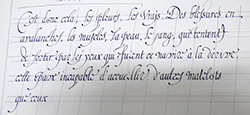 C'est donc cela, les pleurs, les vrais. Des blessures en
avalanches, les muscles, la peau, le sang, qui tentent
de sortir par les yeux qui fuient ce navire à la dérive,
cette épave incapable d'accueillir d'autres matelots
que ceux